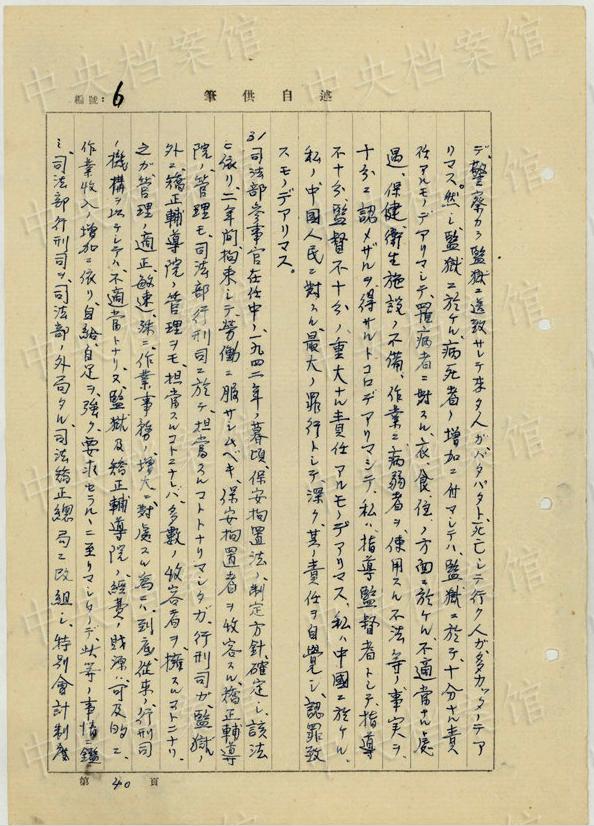 編號: 6
筆供自述
デ、警察カラ監獄ニ送致サレテ來タ人ガバタバタト、死亡シテ行ク人ガ多カッタノデア
リマス。然シ監獄ニ於ケル病死者ノ增加ニ付マシテハ、監獄ニ於テ十分ナル責
任アルモノデアリマシテ、罹病者ニ對スル衣、食、住ノ方面ニ於ケル不適當ナル處
遇、保健衛生施設ノ不備、作業ニ病弱者ヲ使用スル不法等ノ事実ヲ
十分ニ認メザルヲ得ザルトコロデアリマシテ、私ハ指導監督者トシテ指導
不十分、監督不十分ノ重大ナル責任アルモノデアリマス。私ハ中國ニ於ケル、
私ノ中國人民ニ對スル最大ノ罪行トシテ、深ク其ノ責任ヲ自覺シ、認罪致
スモノデアリマス。
3/ 司法部參事官在任中、一九四二年ノ暮頃、保安拘置法ノ制定方針確定シ、該法
ニ依リ二年間拘束シテ勞働ニ服サシムベキ保安拘置者ヲ收容スル矯正輔導
院ノ管理モ、司法部行刑司ニ於テ担當スルコトトナリマシタガ、行刑司ガ監獄ノ
外ニ矯正輔導院ノ管理ヲモ担當スルコトニナレバ、多數ノ收容者ヲ擁スルコトニナリ、
之ガ管理ノ適正敏速、殊ニ作業事務ノ增大ニ對處スル爲ニハ到底從來ノ行刑司
ノ機構ヲ以テシテハ不適當トナリ、又監獄及矯正輔導院ノ經費ノ財源ハ可及的ニ
作業收入ノ增加ニ依リ、自給自足ヲ強ク要求セラルルニ至リマシタノデ、此等ノ事情ニ鑑
ミ、司法部行刑司ヲ司法部ノ外局タル司法矯正總局ニ改組シ、特別會計制度
第 40 頁
中央档案馆